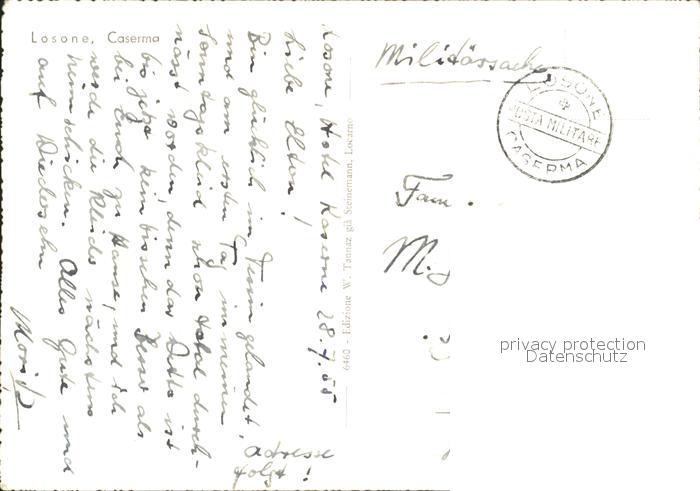 Losone, Caserma
Losone, Hotel Kaserne 28.7.55
Liebe Eltern!
Bin glücklich im Tessin gelandet,
und am ersten Tag in meinem
Sonntagskleid schon total durch-
nässt worden, denn das Wetter ist
bis jetzt kein bisschen besser als
bei Euch zu Hause, und ich
werde die Kleider nächstens
heimschicken. Alles Gute und
auf Wiedersehn
Moritz
Adresse
folgt!
6460 - Edizione W. Tannaz, già Steinemann, Locarno
Militärsache
LOSONE
POSTA MILITARE
CASERMA
Fam.
privacy protection
Datenschutz